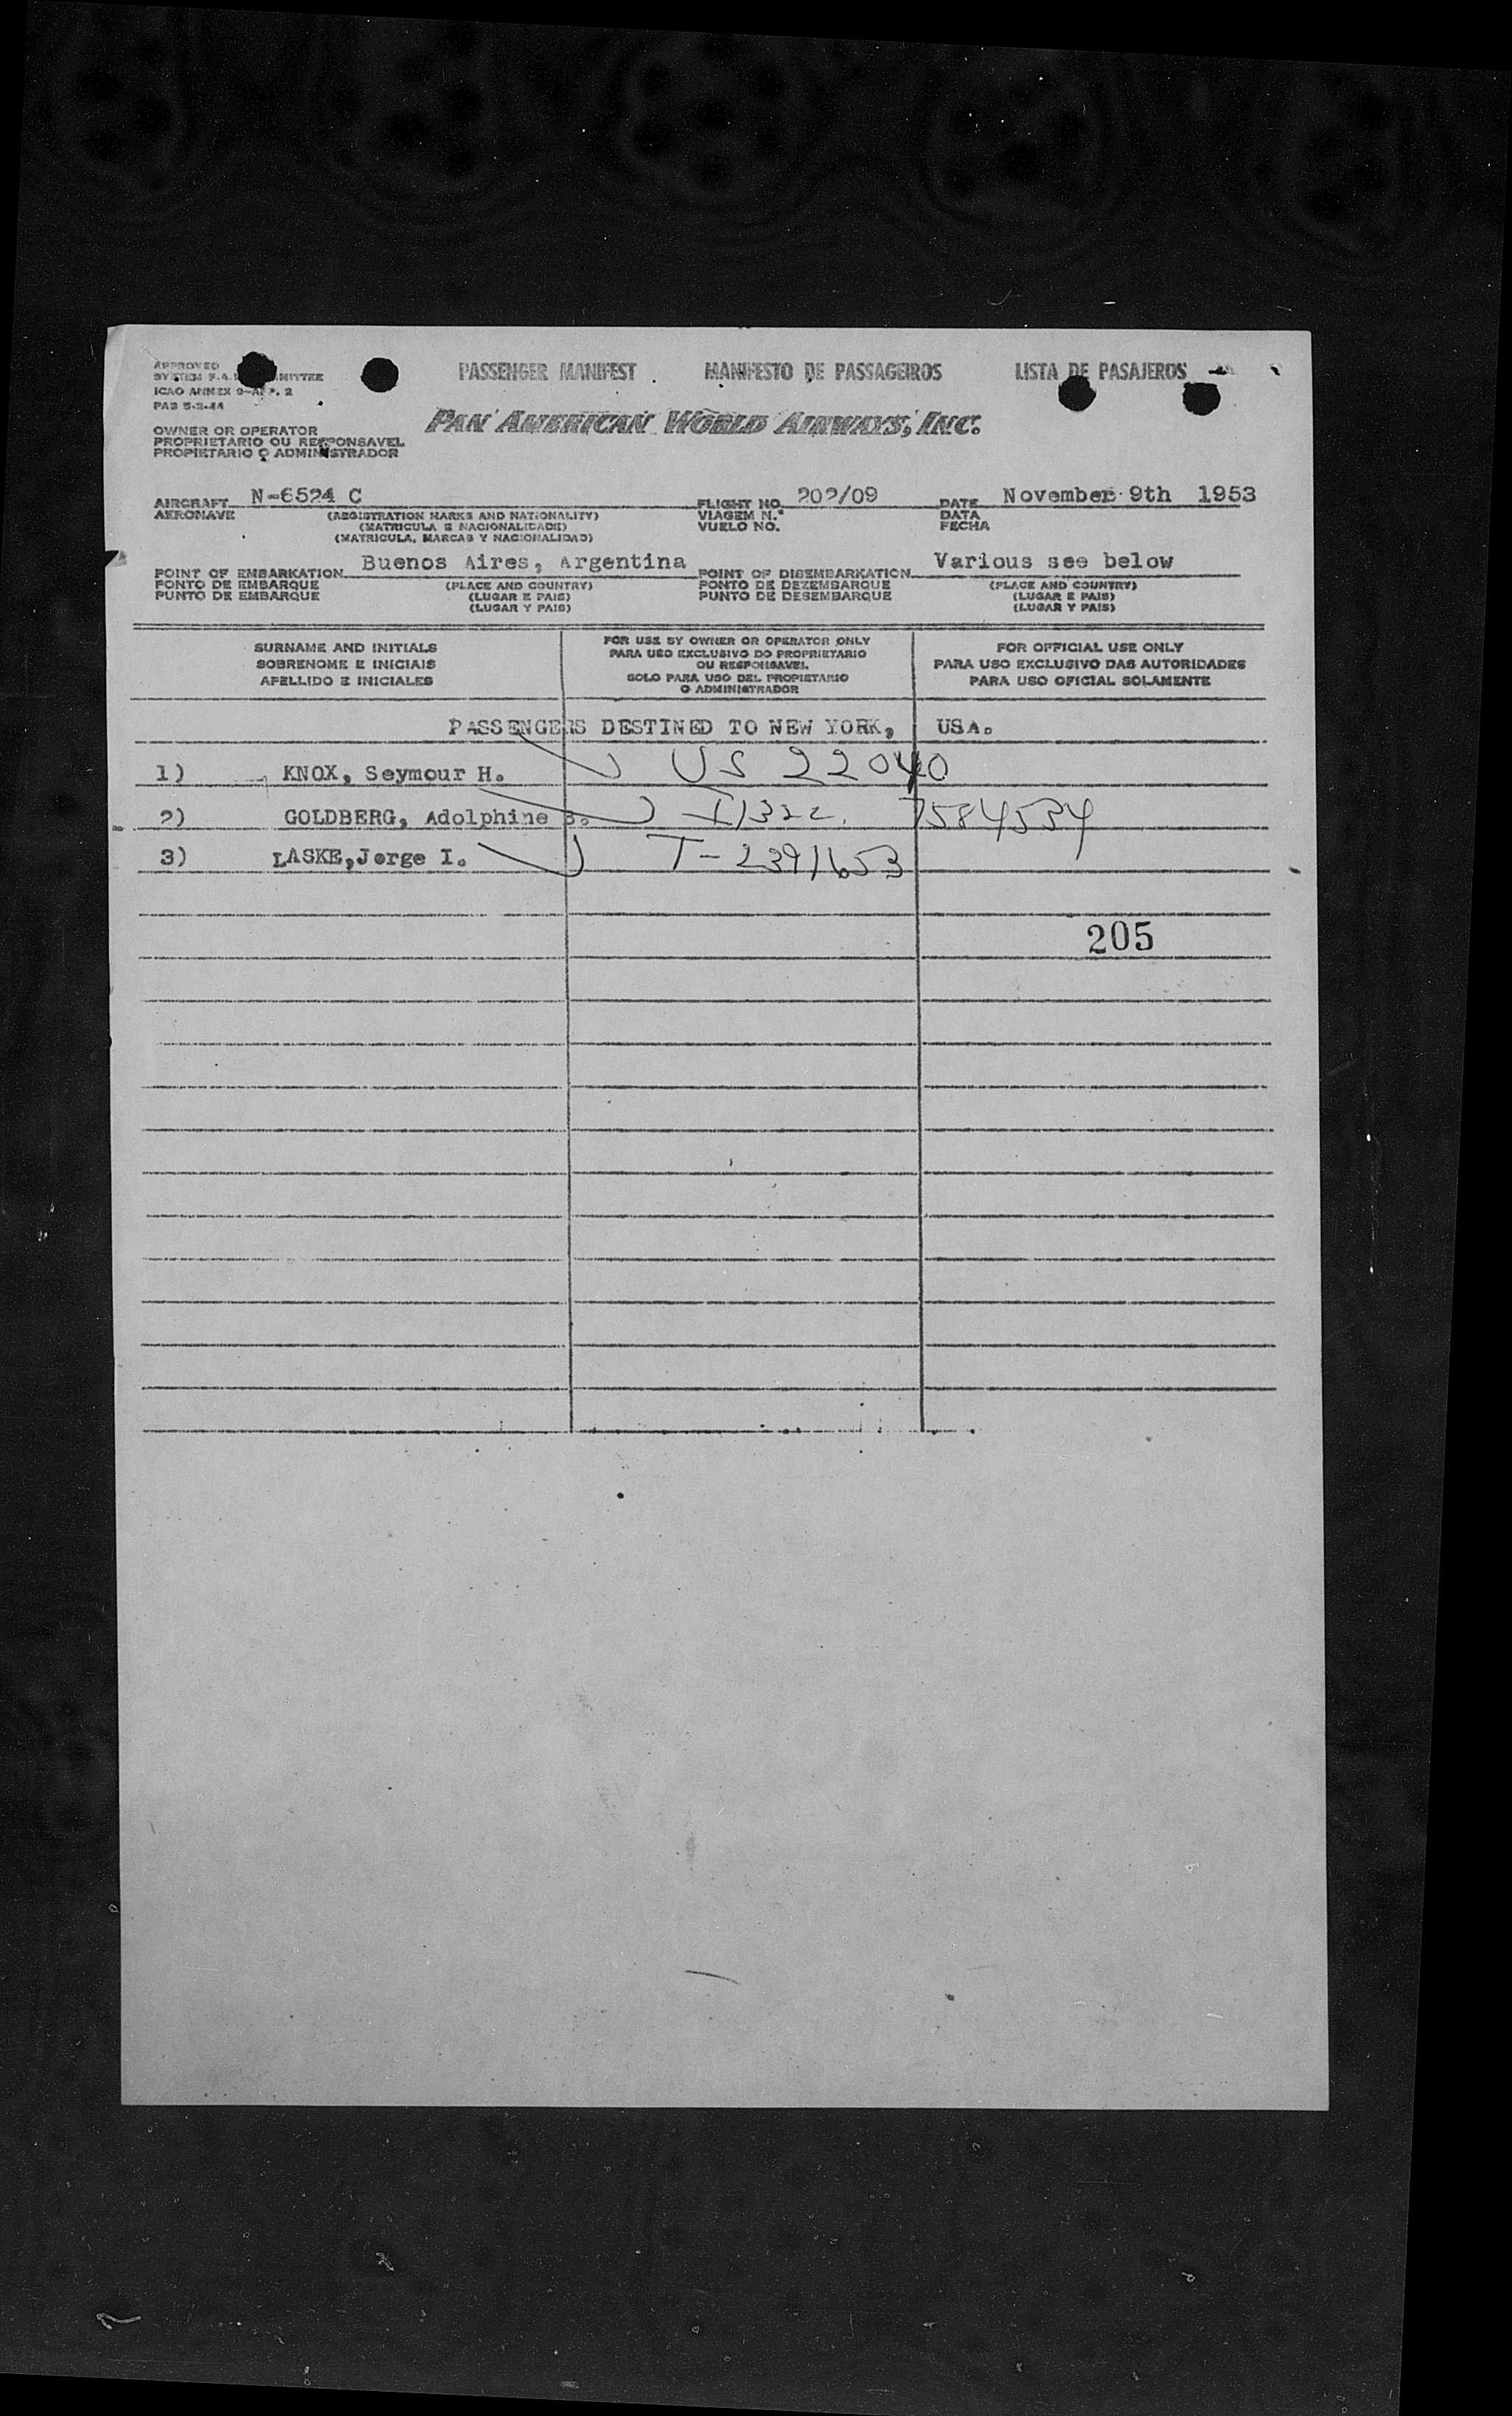 APPROVED PASSENGER MANIFEST MANIFESTO DE PASSAGEIROS LISTA DE PASAJEROS
SYSTEM
ICAO ANNEX 9-APP. 2
PAB 5-2-44
PAN AMERICAN WORLD AIRWAYS, INC.
OWNER OR OPERATOR
PROPRIETARIO OU RESPONSAVEL
PROPIETARIO O ADMINISTRADOR
AIRCRAFT N-6524 C FLIGHT NO. 202/09 DATE November 9th 1953
AERONAVE (REGISTRATION MARKS AND NATIONALITY) VIAGEM N.º DATA
(MATRICULA E NACIONALIDADE) VUELO NO. FECHA
(MATRICULA, MARCAS Y NACIONALIDAD)
POINT OF EMBARKATION Buenos Aires, Argentina POINT OF DISEMBARKATION Various see below
PONTO DE EMBARQUE (PLACE AND COUNTRY) PONTO DE DEZEMBARQUE (PLACE AND COUNTRY)
PUNTO DE EMBARQUE (LUGAR E PAIS) PUNTO DE DESEMBARQUE (LUGAR E PAIS)
(LUGAR Y PAIS) (LUGAR Y PAIS)
SURNAME AND INITIALS
SOBRENOME E INICIAIS
APELLIDO E INICIALES
FOR USE BY OWNER OR OPERATOR ONLY
PARA USO EXCLUSIVO DO PROPRIETARIO
OU RESPONSAVEL
SOLO PARA USO DEL PROPIETARIO
O ADMINISTRADOR
FOR OFFICIAL USE ONLY
PARA USO EXCLUSIVO DAS AUTORIDADES
PARA USO OFICIAL SOLAMENTE
PASSENGERS DESTINED TO NEW YORK, USA.
1) KNOX, Seymour H. US 22040
2) GOLDBERG, Adolphine B. 7584534
3) LASKE,Jorge I. T-2391653
205